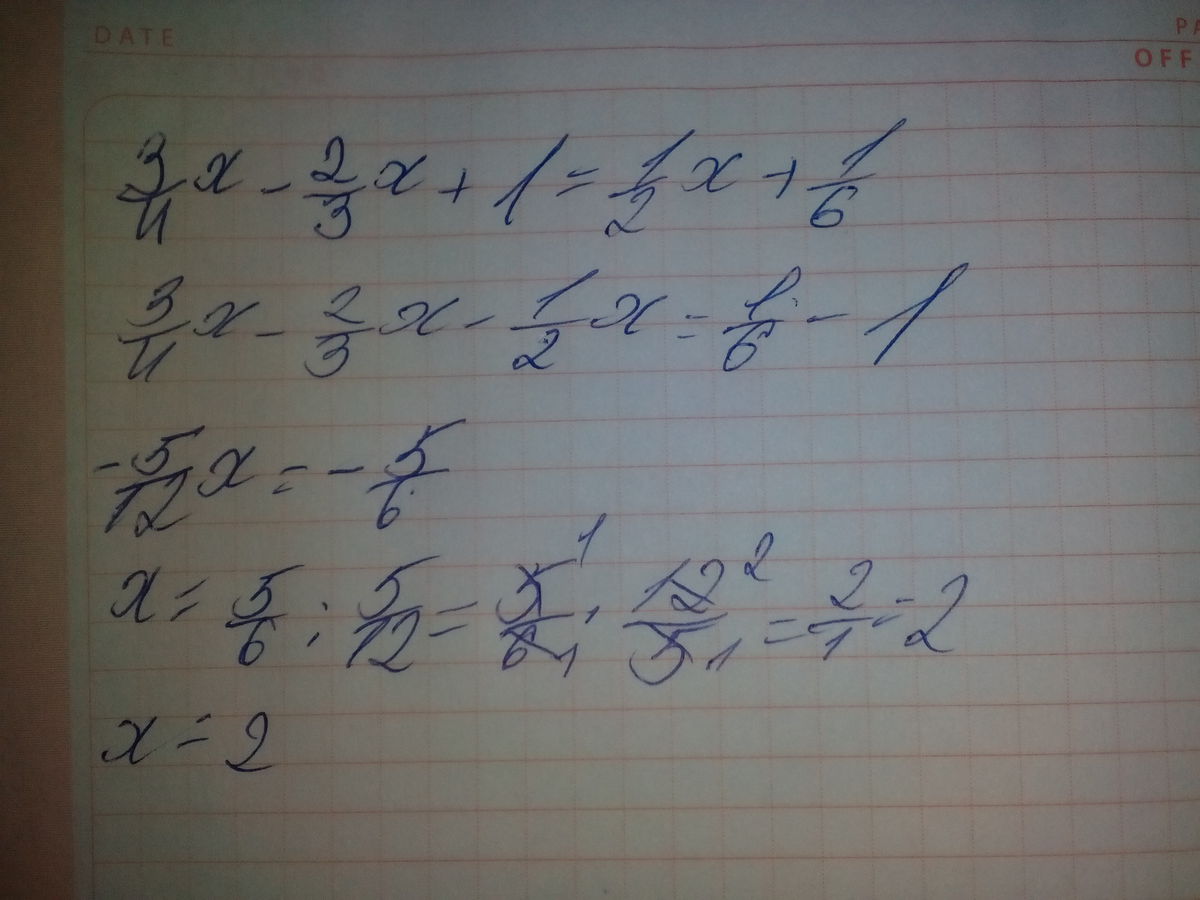 DATE
PA
OFF
3/4 x - 2/3 x + 1 = 1/2 x + 1/6
3/4 x - 2/3 x - 1/2 x = 1/6 - 1
- 5/12 x = - 5/6
x = 5/6 : 5/12 = 5/6 1 1 · 12/5 2 1 = 2/1 = 2
x = 2